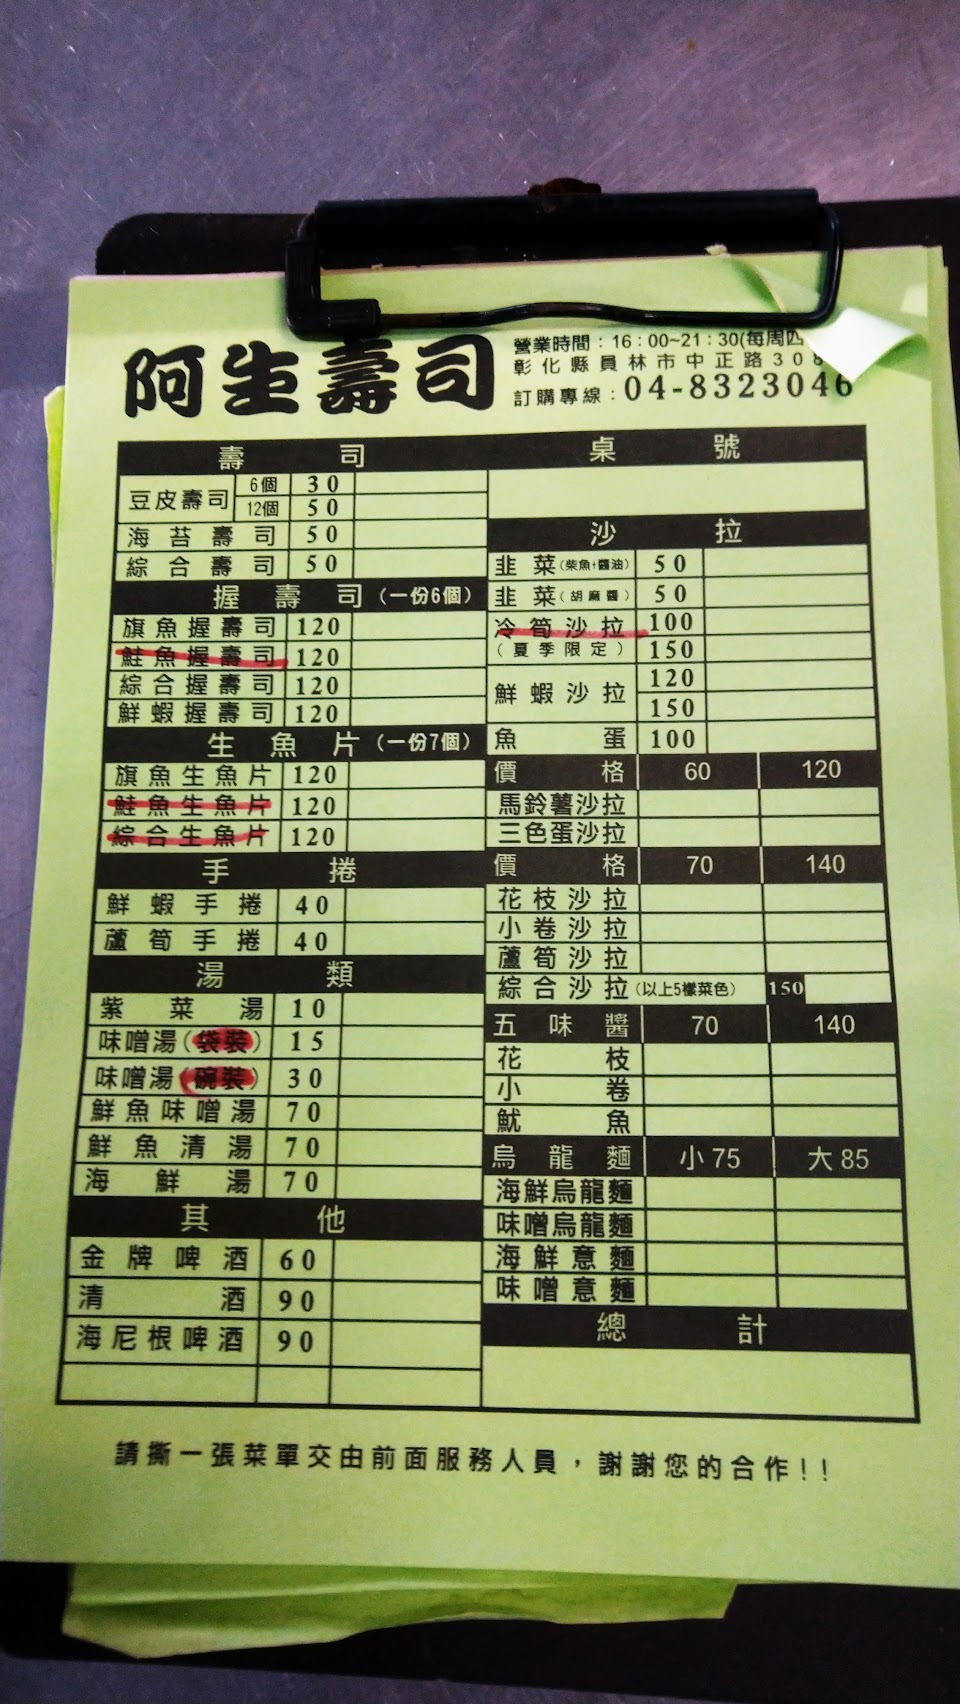 阿生壽司
營業時間：16：00~21：30(每周四
彰化縣員林市中正路308
訂購專線：04-8323046
壽司
豆皮壽司 6個 30
12個 50
海苔壽司 50
綜合壽司 50
握壽司(一份6個)
旗魚握壽司 120
鮭魚握壽司 120
綜合握壽司 120
鮮蝦握壽司 120
生魚片(一份7個)
旗魚生魚片 120
鮭魚生魚片 120
綜合生魚片 120
手捲
鮮蝦手捲 40
蘆筍手捲 40
湯類
紫菜湯 10
味噌湯(袋裝) 15
味噌湯(碗裝) 30
鮮魚味噌湯 70
鮮魚清湯 70
海鮮湯 70
其他
金牌啤酒 60
清酒 90
海尼根啤酒 90
桌號
沙拉
韭菜(柴魚+醬油) 50
韭菜(胡麻醬) 50
冷筍沙拉 100
(夏季限定) 150
鮮蝦沙拉 120
150
魚蛋 100
價格 60 120
馬鈴薯沙拉
三色蛋沙拉
價格 70 140
花枝沙拉
小卷沙拉
蘆筍沙拉
綜合沙拉(以上5樣菜色) 150
五味醬 70 140
花枝
小卷
魷魚
烏龍麵 小75 大85
海鮮烏龍麵
味噌烏龍麵
海鮮意麵
味噌意麵
總計
請撕一張菜單交由前面服務人員，謝謝您的合作!!